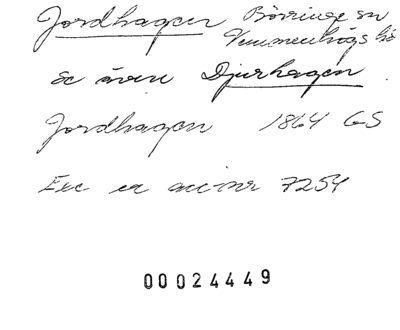 Jordhagen Börringe sn
Vemmenhögs hd
Se även Djurhagen
Jordhagen 1864 GS
Exc en acc nr 7254
00024449